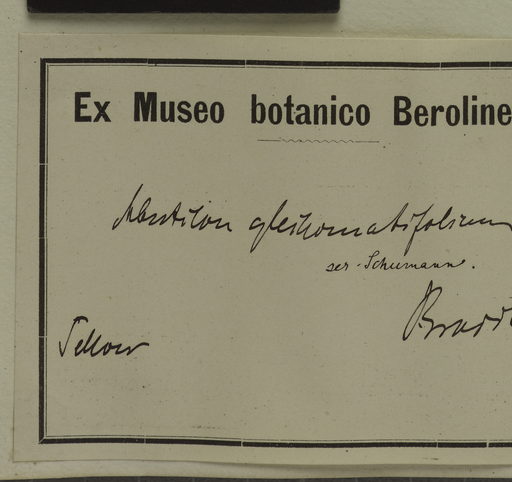 Ex Museo botanico Beroline
Abutilon glechomatifolium
ser. Schumann.
Sellow